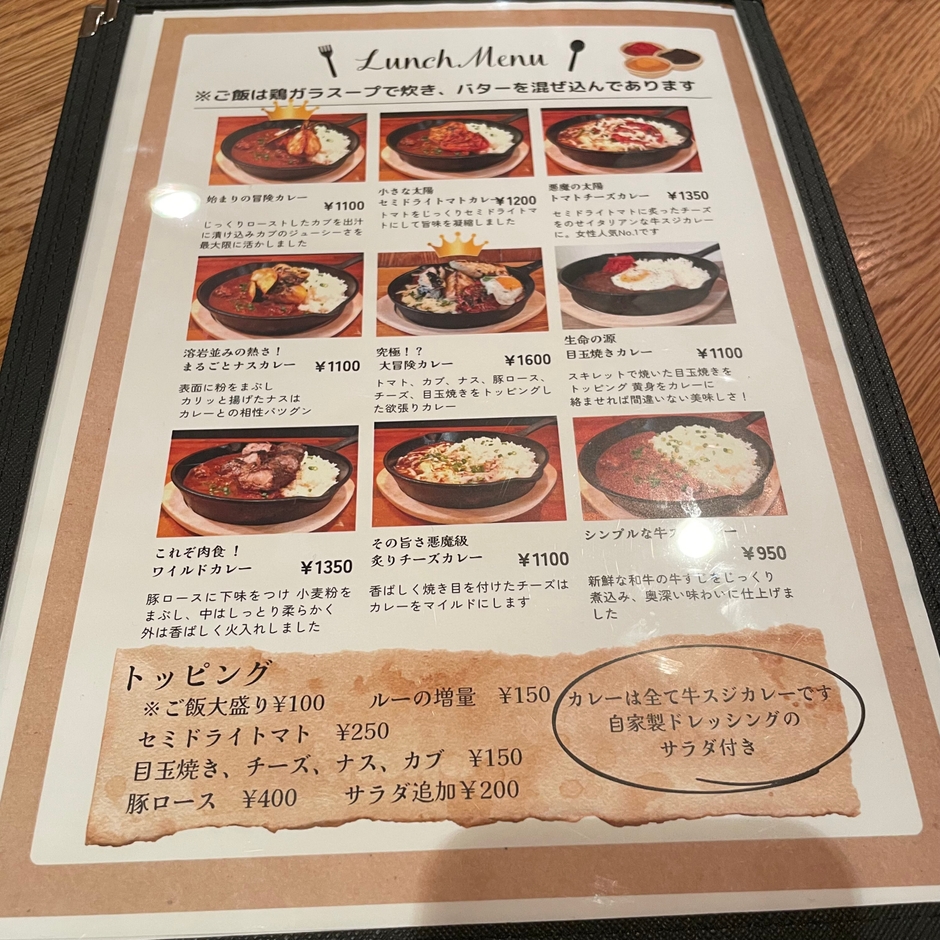 Lunch Menu
※ご飯は鶏ガラスープで炊き、バターを混ぜ込んであります
始まりの冒険カレー ¥1100
じっくりローストしたカブを出汁
に漬け込みカブのジューシーさを
最大限に活かしました
小さな太陽
セミドライトマトカレー ¥1200
トマトをじっくりセミドライトマ
トにして旨味を凝縮しました
悪魔の太陽
トマトチーズカレー ¥1350
セミドライトマトに炙ったチーズ
をのせイタリアンな牛スジカレー
に。女性人気No.1です
溶岩並みの熱さ！
まるごとナスカレー ¥1100
表面に粉をまぶし
カリッと揚げたナスは
カレーとの相性バツグン
究極！？
大冒険カレー ¥1600
トマト、カブ、ナス、豚ロース、
チーズ、目玉焼きをトッピングし
た欲張りカレー
生命の源
目玉焼きカレー ¥1100
スキレットで焼いた目玉焼きを
トッピング 黄身をカレーに
絡ませれば間違いない美味しさ！
これぞ肉食！
ワイルドカレー ¥1350
豚ロースに下味をつけ 小麦粉を
まぶし、中はしっとり柔らかく
外は香ばしく火入れしました
その旨さ悪魔級
炙りチーズカレー ¥1100
香ばしく焼き目を付けたチーズは
カレーをマイルドにします
シンプルな牛
¥950
新鮮な和牛の牛すじをじっくり
煮込み、奥深い味わいに仕上げま
した
トッピング
※ご飯大盛り¥100 ルーの増量 ¥150
セミドライトマト ¥250
目玉焼き、チーズ、ナス、カブ ¥150
豚ロース ¥400 サラダ追加¥200
カレーは全て牛スジカレーです
自家製ドレッシングの
サラダ付き